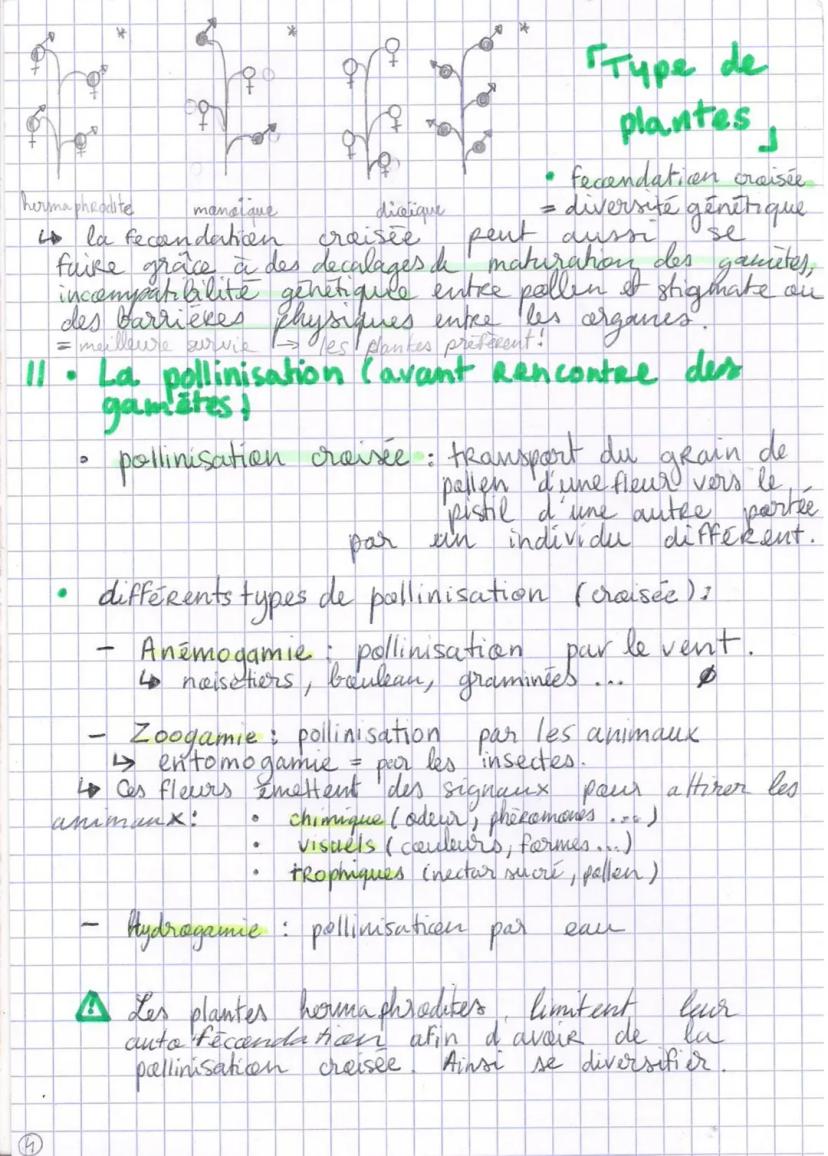 「Type de
plantes」
hermaphrodite monoïque dioïque
• fecondation croisée
= diversité génétique
↳ la fecondation croisée peut aussi se
faire grâce à des decalages de maturation des gamètes,
incompatibilité génétique entre pollen et stigmate ou
des barrières physiques entre les organes.
= meilleure survie → les plantes préfèrent!
II • La pollinisation (avant rencontre des
gamètes)
• pollinisation croisée : transport du grain de
pollen d'une fleur vers le
pistil d'une autre portée
par un individu différent.
• différents types de pollinisation (croisée) :
- Anémogamie : pollinisation par le vent.
↳ noisetiers, bouleau, graminées ... ø
- Zoogamie : pollinisation par les animaux
↳ entomogamie = par les insectes.
↳ Ces fleurs émettent des signaux pour attirer les
animaux : • chimique (odeur, phéromones ...)
• visuels (couleurs, formes...)
• trophiques (nectar sucré, pollen)
- Hydrogamie : pollinisation par eau
⚠ Les plantes hermaphrodites limitent leur
auto fécondation afin d'avoir de la
pollinisation croisée. Ainsi se diversifier.